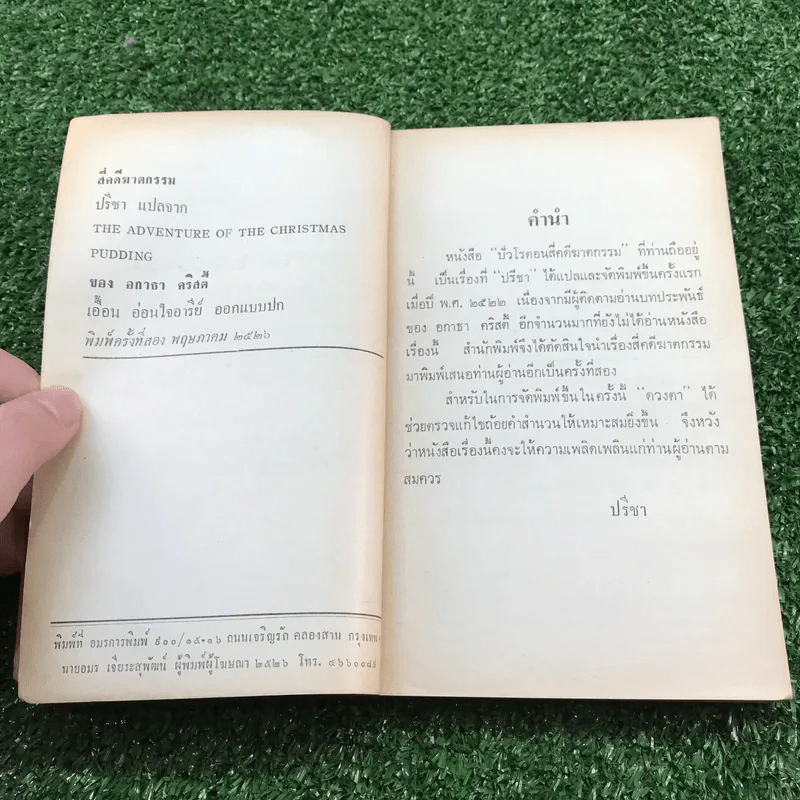 สี่คดีฆาตกรรม
ปรีชา แปลจาก
THE ADVENTURE OF THE CHRISTMAS
PUDDING
ของ อกาธา คริสตี้
เอื้อน อ่อนใจอารีย์ ออกแบบปก
พิมพ์ครั้งที่สอง พฤษภาคม ๒๕๒๖
พิมพ์ที่ อมรการพิมพ์ ๙๐๐/๑๕-๑๖ ถนนเจริญรัถ คลองสาน กรุงเทพ
นายอมร เจียระสุพัฒน์ ผู้พิมพ์ผู้โฆษณา ๒๕๒๖ โทร.
คำนำ
หนังสือ "ปัวโรตอนสี่คดีฆาตกรรม" ที่ท่านถืออยู่
นี้ เป็นเรื่องที่ "ปรีชา" ได้แปลและจัดพิมพ์ขึ้นครั้งแรก
เมื่อปี พ.ศ. ๒๕๒๒ เนื่องจากมีผู้ติดตามอ่านบทประพันธ์
ของ อกาธา คริสตี้ อีกจำนวนมากที่ยังไม่ได้อ่านหนังสือ
เรื่องนี้ สำนักพิมพ์จึงได้ตัดสินใจนำเรื่องสี่คดีฆาตกรรม
มาพิมพ์เสนอท่านผู้อ่านอีกเป็นครั้งที่สอง
สำหรับในการจัดพิมพ์ขึ้นในครั้งนี้ "ดวงตา" ได้
ช่วยตรวจแก้ไขถ้อยคำสำนวนให้เหมาะสมยิ่งขึ้น จึงหวัง
ว่าหนังสือเรื่องนี้คงจะให้ความเพลิดเพลินแก่ท่านผู้อ่านตาม
สมควร
ปรีชา